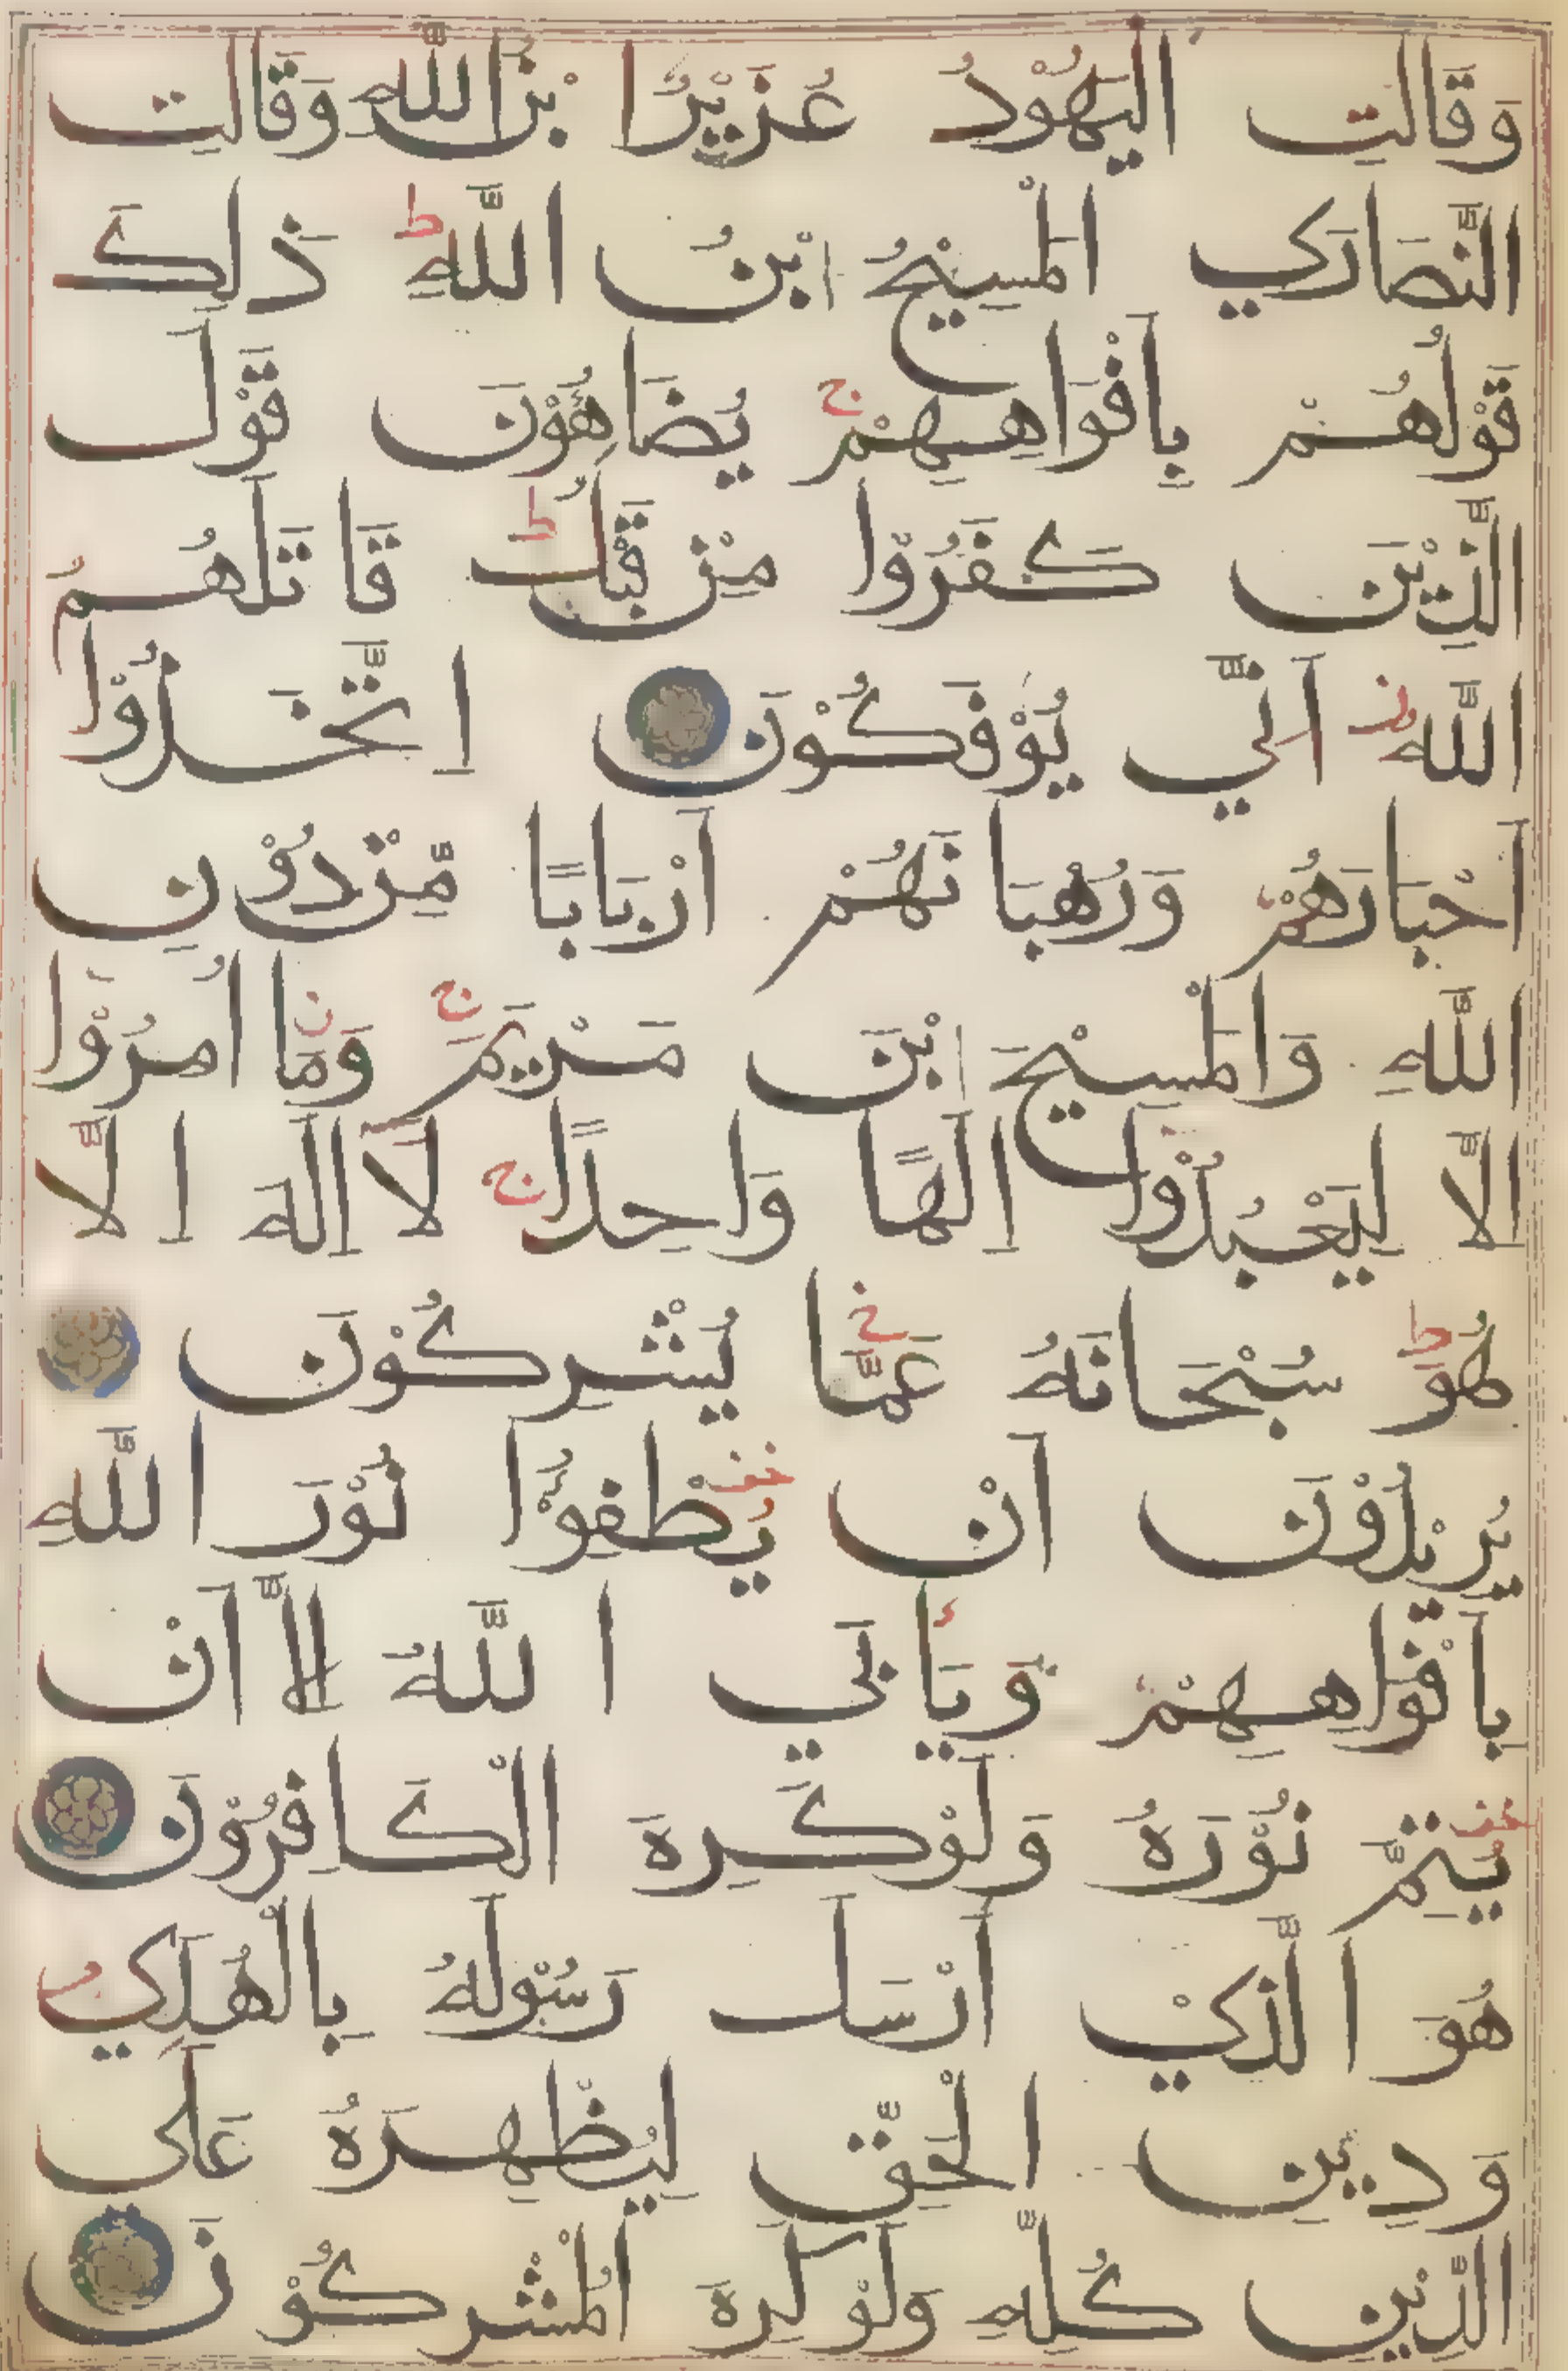 وَقَالَتِ الْيَهُوْدُ عُزَيْرُ ا بْنُ اللّٰهِ وَقَالَتِ
النَّصَارَي الْمَسِيْحُ ابْنُ اللّٰهِ ط ذَلِكَ
قَوْلُهُمْ بِاَفْوَاهِهِمْ ج يُضَاهِؤُنَ قَوْلَ
الَّذِيْنَ كَفَرُوْا مِنْ قَبْلُ ط قَاتَلَهُمُ
اللّٰهُ اَنّٰي يُؤْفَكُوْنَ اِتَّخَذُوْا
اَحْبَارَهُمْ وَرُهْبَانَهُمْ اَرْبَابًا مِّنْ دُوْنِ
اللّٰهِ وَالْمَسِيْحَ ابْنَ مَرْيَمَ ج وَمَا اُمِرُوْا
اِلَّا لِيَعْبُدُوْا اِلَهًا وَاحِدًا ج لَا اِلَهَ اِلَّا
هُوَ ط سُبْحَانَهُ عَمَّا يُشْرِكُوْنَ
يُرِيْدُوْنَ اَنْ يُطْفِؤُا نُوْرَ اللّٰهِ
بِاَفْوَاهِهِمْ وَيَأْبَي اللّٰهُ اِلَّا اَنْ
يُتِمَّ نُوْرَهُ وَلَوْ كَرِهَ الْكَافِرُوْنَ
هُوَ الَّذِيْ اَرْسَلَ رَسُوْلَهُ بِالْهُدَي
وَدِيْنِ الْحَقِّ لِيُظْهِرَهُ عَلَى
الدِّيْنِ كُلِّهِ وَلَوْ كَرِهَ الْمُشْرِكُوْنَ